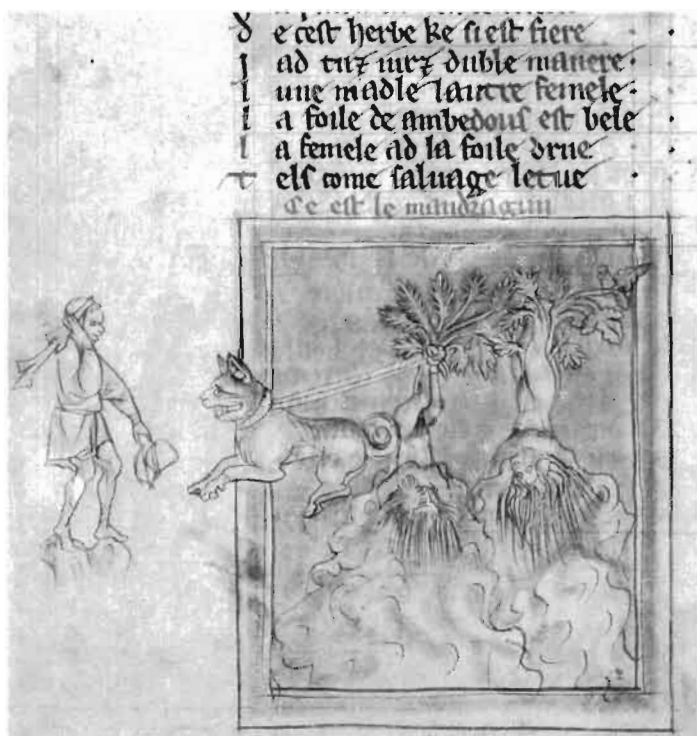 D e cest herbe ke si est fiere
I ad tuz iurz duble manere
l une madle lautre femele
l a foile de ambedous est bele
l a femele ad la foile drue
t els come saluage letue
Ce est le mandragun